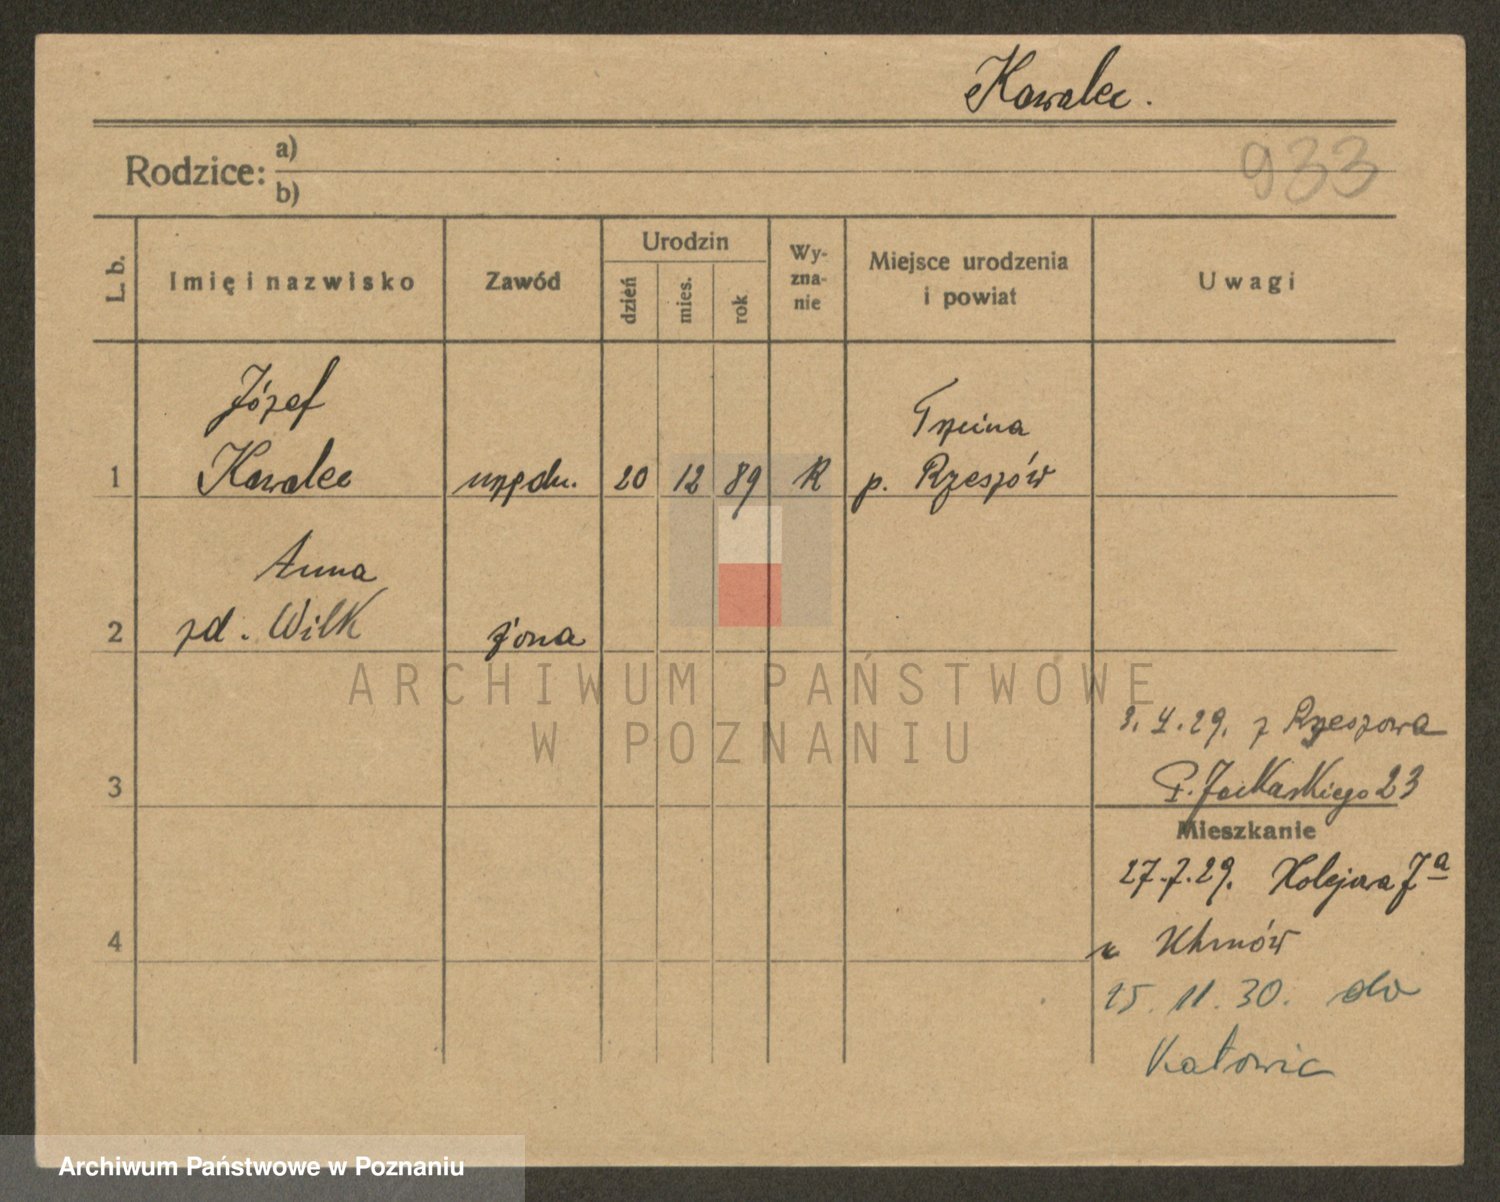 Kawalec.
Rodzice: a)
b)
933
L. b.
Imię i nazwisko
Zawód
Urodzin
dzień
mies.
rok
Wy-
zna-
nie
Miejsce urodzenia
i powiat
Uwagi
Józef
1 Kawalec urzędn. 20 12 89 R
p. Rzeszów
Anna
2 zd. Wilk żona
ARCHIWUM PAŃSTWOWE
W POZNANIU
3. 4. 29. z Rzeszowa
3
23
Mieszkanie
27.7.29. Kolejowa 7a
4
15. 11. 30. do
Katowic
Archiwum Państwowe w Poznaniu